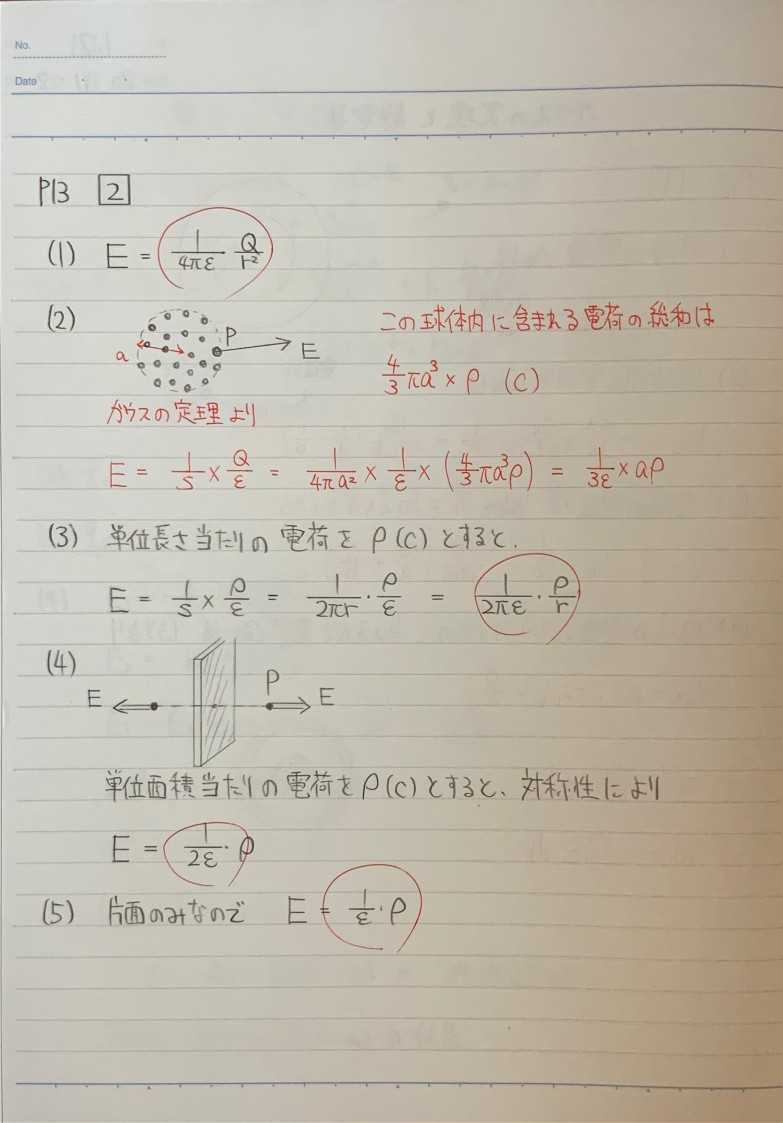 No.
Date
P13 2
(1) E = 1/4πε · Q/r²
(2) P E a
この球体内に含まれる電荷の総和は
4/3 πa³ × ρ (C)
ガウスの定理より
E = 1/S × Q/ε = 1/4πa² × 1/ε × (4/3 πa³ρ) = 1/3ε × aρ
(3) 単位長さ当たりの電荷を ρ(C) とすると.
E = 1/S × ρ/ε = 1/2πr · ρ/ε = 1/2πε · ρ/r
(4) E P E
単位面積当たりの電荷をρ(C)とすると、対称性により
E = 1/2ε · ρ
(5) 片面のみなので E = 1/ε · ρ